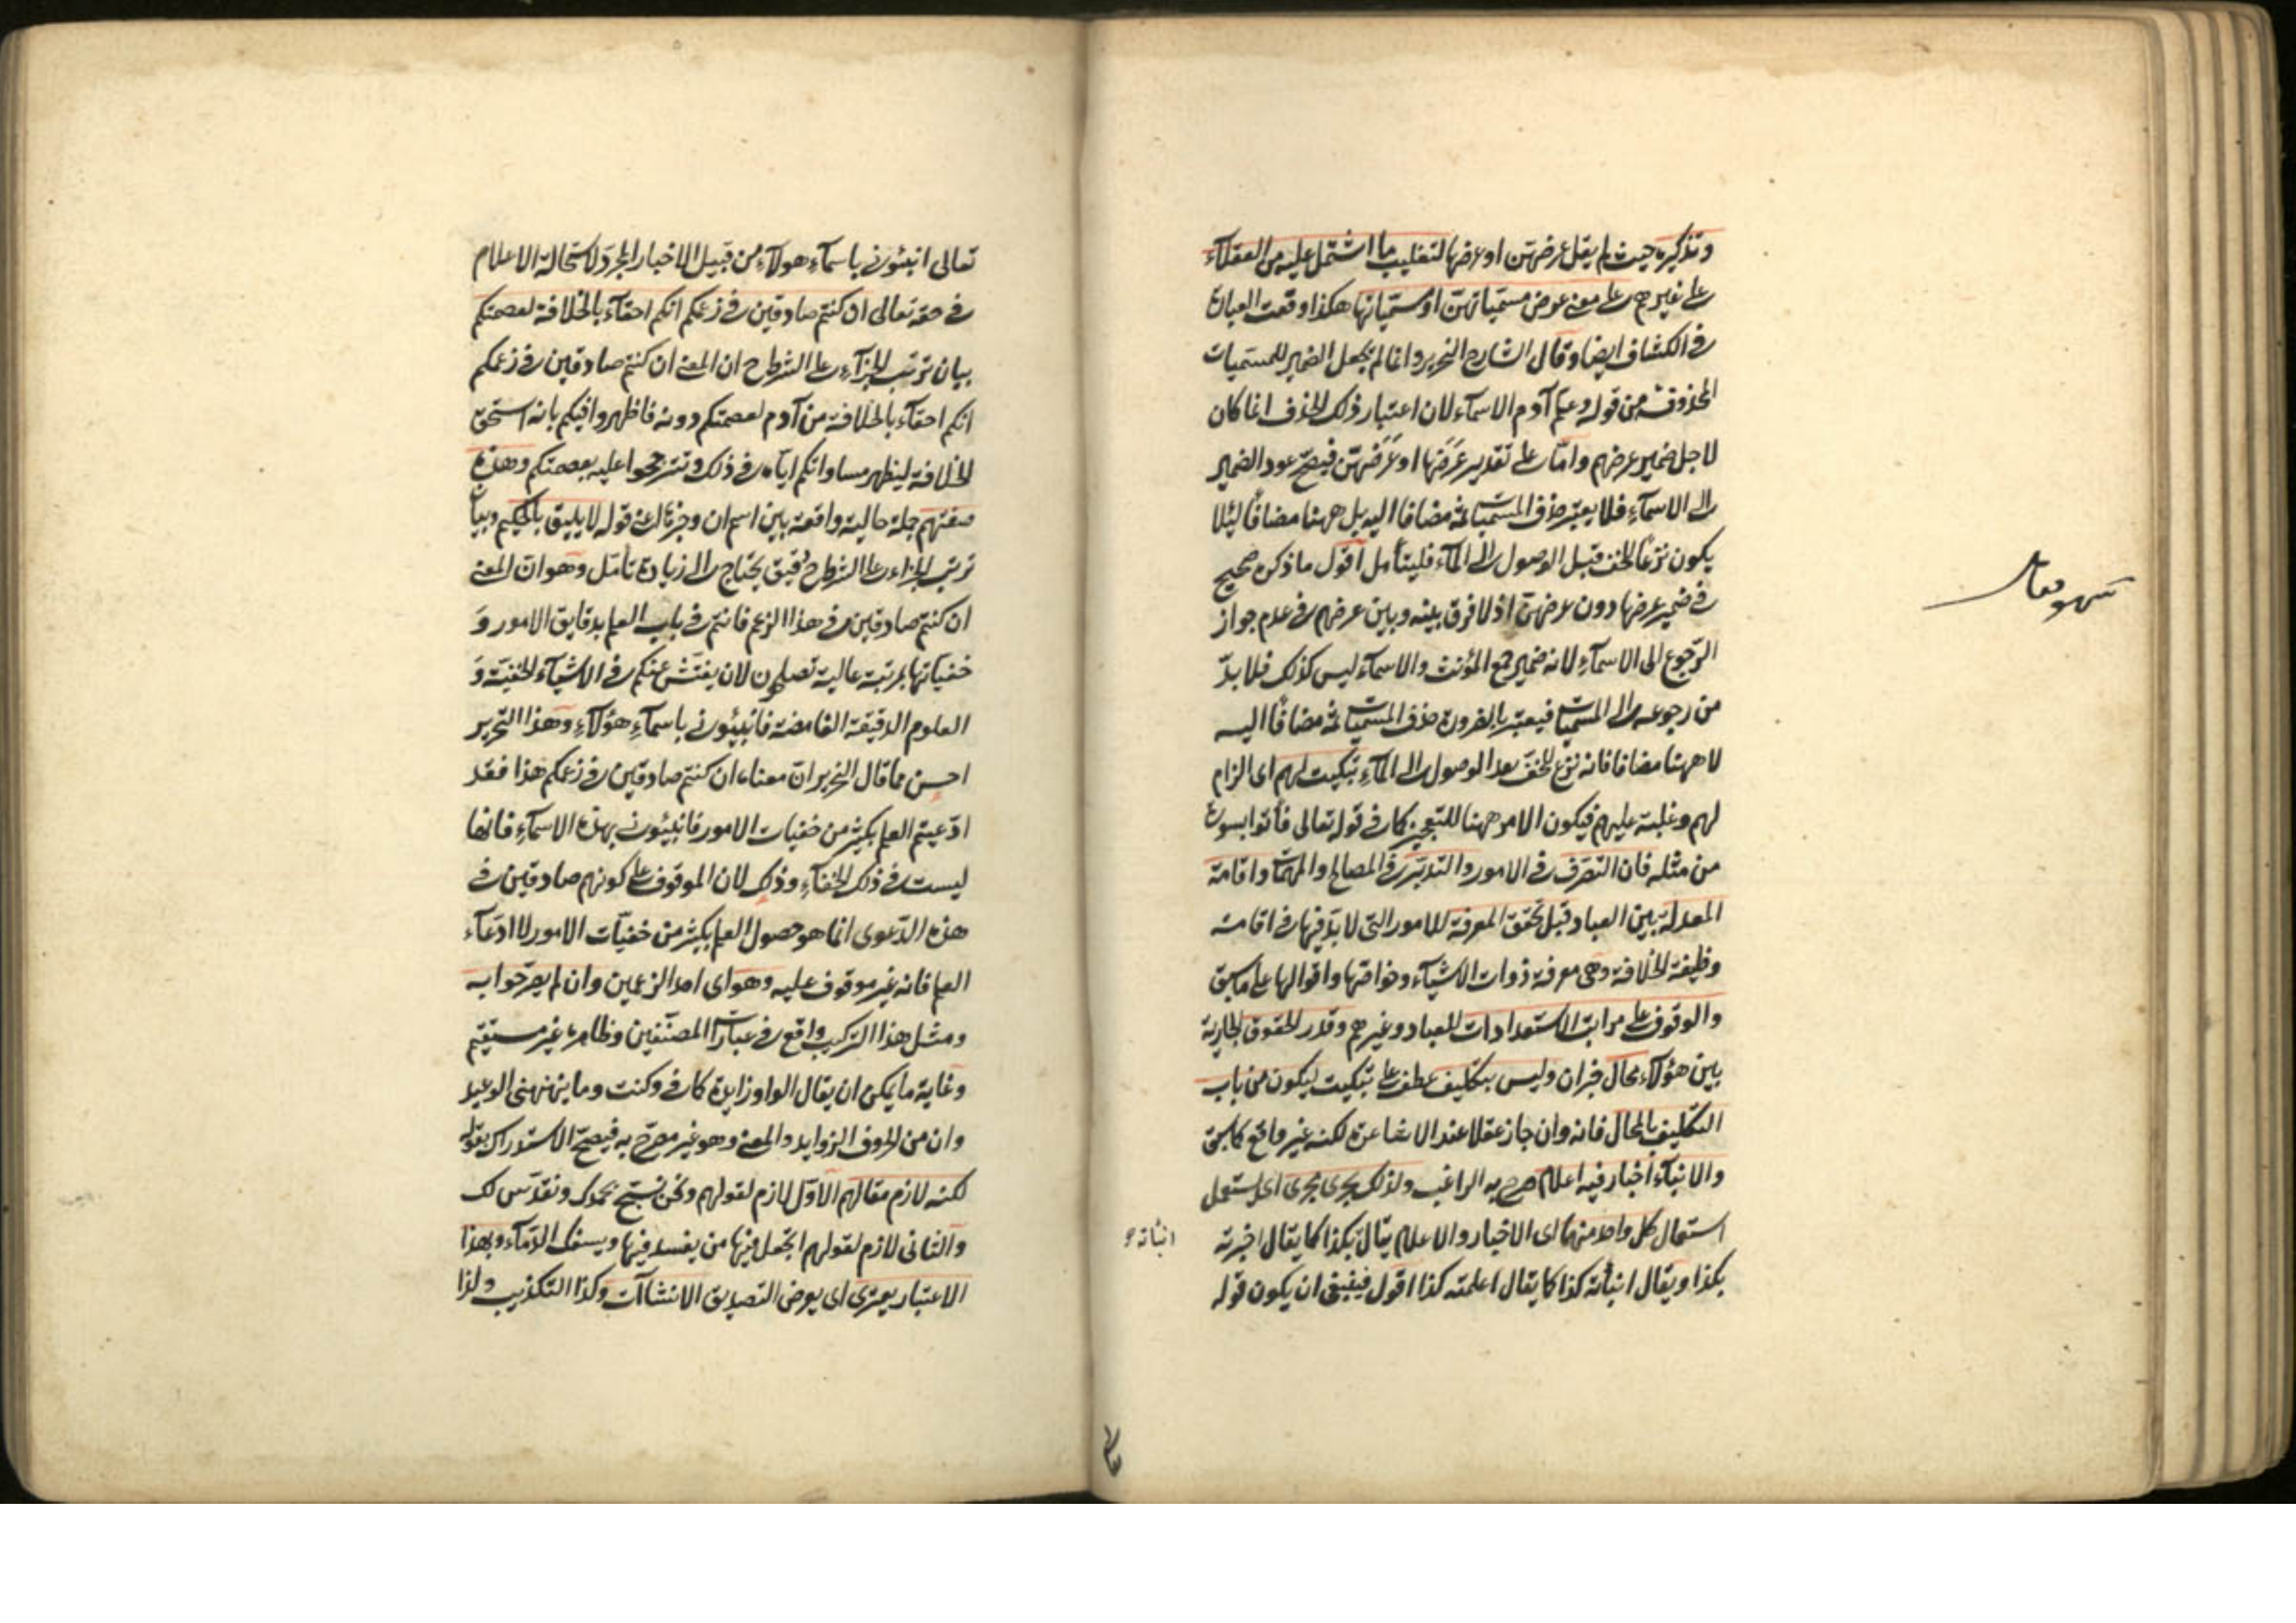 وتذكيره حيث لم يقل عرضهن او عرضها لتغليب ما اشتمل عليه من العقلاء
على غيرهم على معنى عرض مسمياتهن او مسمياتها هكذا وقعت العبارة
في الكشاف ايضا وقال الشارح النحرير وانما لم يجعل الضمير للمسميات
المحذوفة من قوله وعلم آدم الاسماء لان اعتبار ذلك الحذف انما كان
لاجل ضمير عرضهم واما على تقدير عرضها او عرضهن فيصح عود الضمير
الى الاسماء فلا يعتبر حذف المسميات ثمة مضافا اليه بل ههنا مضافا لئلا
يكون نزعا للخف قبل الوصول الى الماء فليتأمل اقول ما ذكره صحيح
في ضمير عرضها دون عرضهن اذ لا فرق بينه وبين عرضهم في عدم جواز
الرجوع الى الاسماء لانه ضمير جمع المؤنث والاسماء ليس كذلك فلا بد
من رجوعه الى المسميات فيعتبر بالضرورة حذف المسميات ثمة مضافا اليه
لا ههنا مضافا فانه نزع للخف بعد الوصول الى الماء تبكيت لهم اى الزام
لهم وغلبة عليهم فيكون الامر ههنا للتعجيز كما في قوله تعالى فأتوا بسورة
من مثله فان التصرف في الامور والتدبير في المصالح والمهمات واقامة
المعدلة بين العباد قبل تحقق المعرفة للامور التى لا بد فيها في اقامة
وظيفة الخلافة وهى معرفة ذوات الاشياء وخواصها واقوالها على ما سبق
والوقوف على مراتب الاستعدادات للعباد وغيرهم وقدر الحقوق الجارية
بين هؤلاء محال خبر ان وليس بتكليف عطف على تبكيت ليكون من باب
التكليف بالمحال فانه وان جاز عقلا عند الاشاعرة لكنه غير واقع كما سبق
والانباء اخبار فيه اعلام صرح به الراغب ولذلك يجرى مجرى اى يستعمل
استعمال كل واحد منهما اى الاخبار والاعلام يقال بكذا كما يقال اخبرته
انبأته
بكذا ويقال انبأته كذا كما يقال اعلمته كذا اقول فينبغى ان يكون قوله
تعالى انبئونى باسماء هؤلاء من قبيل الاخبار المجرد لاستحالة الاعلام
في حقه تعالى ان كنتم صادقين في زعمكم انكم احقاء بالخلافة لعصمتكم
بيان ترتب الجزاء على الشرط ح ان المعنى ان كنتم صادقين في زعمكم
انكم احقاء بالخلافة من آدم لعصمتكم دونه فاظهروا فيكم بانه استحق
الخلافة ليظهر مساواتكم اياه في ذلك وتترجحوا عليه بعصمتكم وهذه
صفتهم جملة حالية واقعة بين اسم ان وجزئه اعنى قوله لا يليق بالحكيم وبيان
ترتب الجزاء على الشرط ح دقيق يحتاج الى زيادة تأمل وهو ان المعنى
ان كنتم صادقين في هذا الزعم فانتم في باب العلم بدقايق الامور و
خفياتها بمرتبة عالية تصلحون لان يفتش عنكم في الاشياء الخفية و
العلوم الدقيقة الغامضة فانبئونى باسماء هؤلاء وهذا التحرير
احسن مما قال النحرير ان معناه ان كنتم صادقين في زعمكم هذا فقد
ادعيتم العلم بكثير من خفيات الامور فانبئونى بهذه الاسماء فانها
ليست في ذلك الخفاء وذلك لان الموقوف على كونهم صادقين في
هذه الدعوى انما هو حصول العلم بكثير من خفيات الامور لا ادعاء
العلم فانه غير موقوف عليه وهو اى احد الزعمين وان لم يصرحوا به
ومثل هذا التركيب واقع في عبارات المصنفين وظاهره غير مستقيم
وغاية ما يمكن ان يقال الواو زايدة كما في وكنت وما ينهنهنى الوعيد
وان من الحروف الزوايد والمعنى وهو غير مصرح به فيصح الاستدراك بقوله
لكنه لازم مقالهم الاول لازم لقولهم ونحن نسبح بحمدك ونقدس لك
والثانى لازم لقولهم اتجعل فيها من يفسد فيها ويسفك الدماء وبهذا
الاعتبار يعترى اى يعرض التصديق الانشاآت وكذا التكذيب ولذا